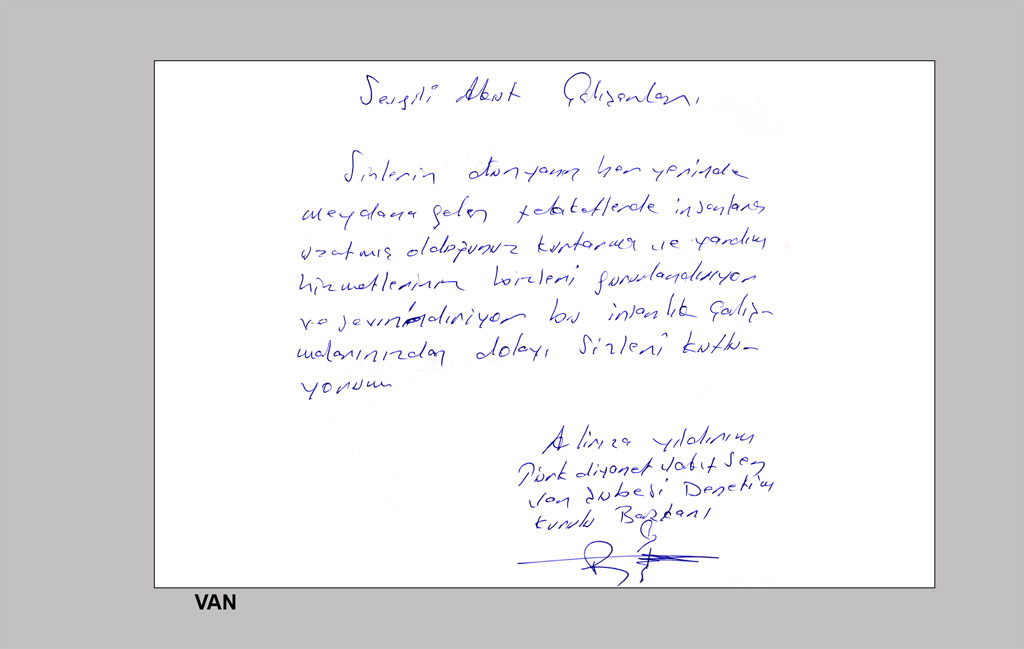 Sevgili Akut Çalışanları,
Sizlerin dünyanın her yerinde
meydana gelen felaketlerde insanlara
uzatmış olduğunuz kurtarma ve yardım
hizmetleriniz bizleri gururlandırıyor
ve sevindiriyor bu insanlık çalış-
malarınızdan dolayı sizleri kutlu-
yorum
Alirıza yıldırım
Türk diyanet vakıf Sen
Van Şubesi Denetim
kurulu Başkanı
VAN